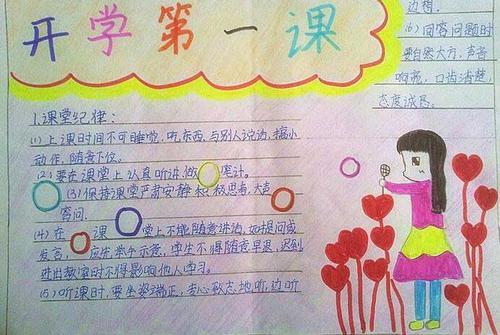 开学第一课
1.课堂纪律:
(1)上课时间不可睡觉,吃东西,与别人说话,搞小
动作,随意下位。
(2)要在课堂上认真听讲,做 笔计。
(3)保持课堂严肃安静,积极思考,大声
答问.
(4)在 课 堂上不能随意讲话,如提问或
发言, 应先举手示意,学生不得随意早退,迟到
进出教室时不得影响他人学习。
(5)听课时,要坐姿端正,专心致志地听,边听
边想.
(6)回答问题时
要自然大方,声音
响亮,口齿清楚
态度诚恳。